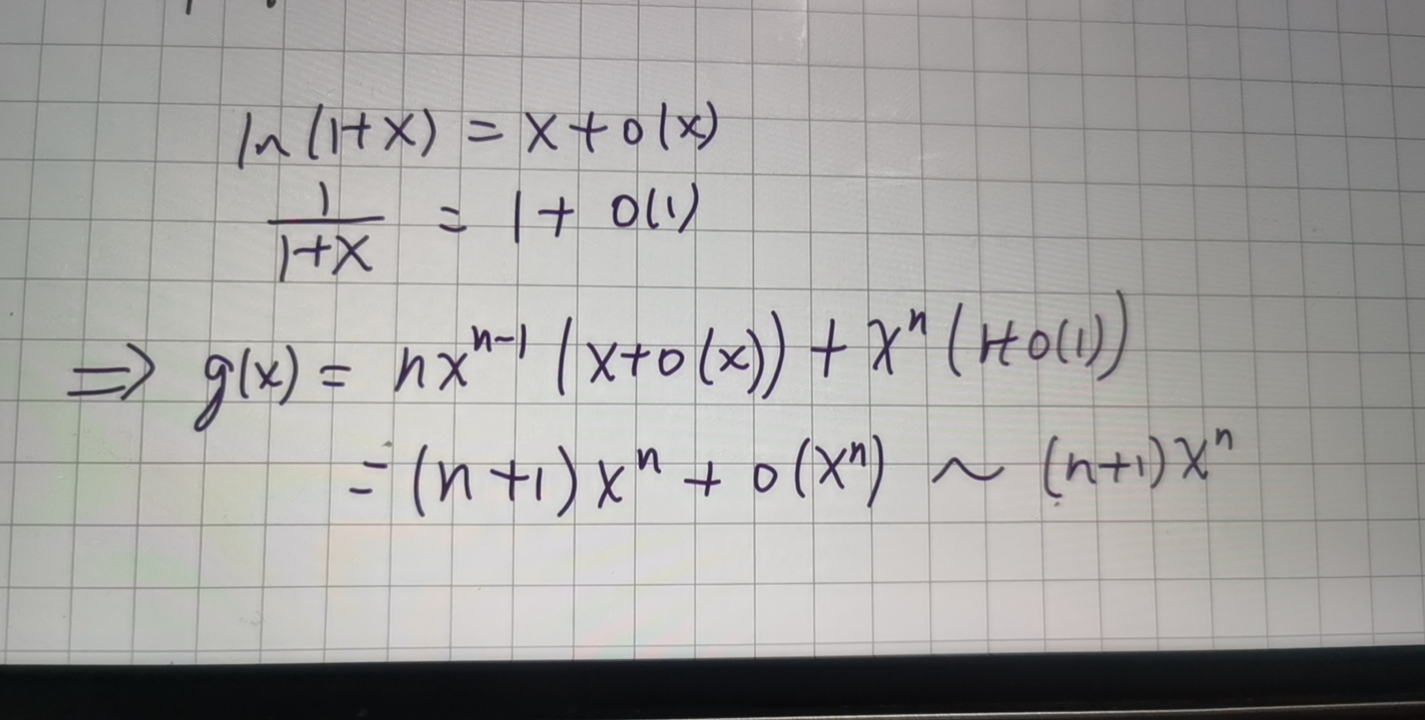 ln(1+x) = x+o(x)
1/(1+x) = 1+ o(1)
⇒ g(x) = nxⁿ⁻¹ (x+o(x)) + xⁿ (1+o(1))
= (n+1) xⁿ + o(xⁿ) ~ (n+1) xⁿ